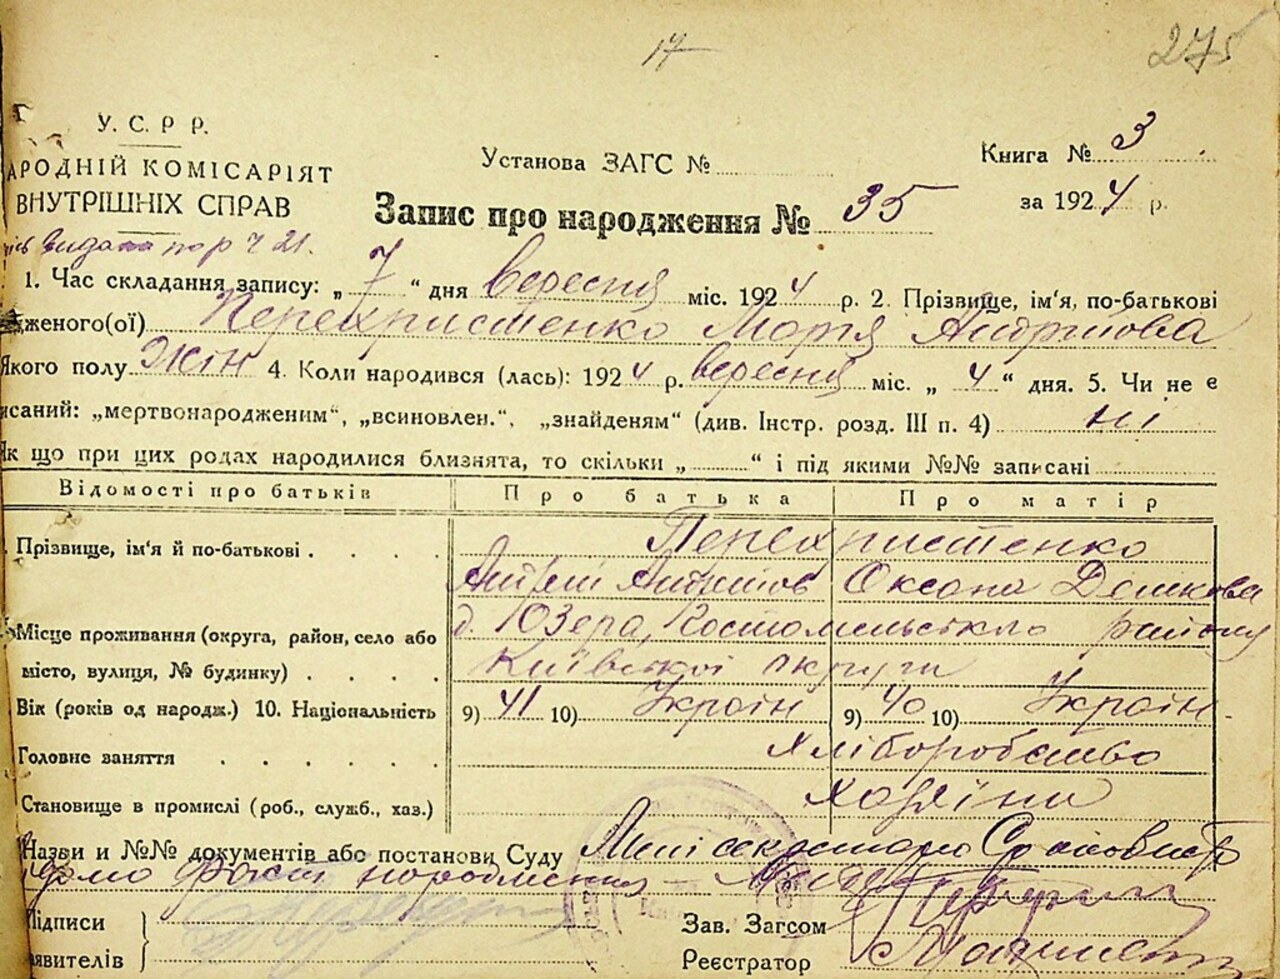 17 275
У. С. Р Р.
АРОДНІЙ КОМІСАРІЯТ
ВНУТРІШНІХ СПРАВ
Установа ЗАГС №
Книга № 3
за 1924 р.
Запис про народження № 35
видана по р ч 21.
1. Час складання запису: „7“ дня вересня міс. 1924 р. 2. Прізвище, ім'я, по-батькові
дженого(ої) Перехристенко Марія Андріїова
Якого полу жін 4. Коли народився (лась): 1924 р. вересня міс. „4“ дня. 5. Чи не є
исаний: „мертвонародженим“, „всиновлен.“, „знайденям“ (див. Інстр. розд. III п. 4) ні
Як що при цих родах народилися близнята, то скільки „ “ і під якими №№ записані
Відомості про батьків Про батька Про матір
Прізвище, ім'я й по-батькові Перехристенко
Андрій Андріїов Оксана Деликова
Місце проживання (округа, район, село або д. Озера, Гостомельського району
місто, вулиця, № будинку) Київської округи
Вік (років од народж.) 10. Національність 9) 41 10) Україн 9) 40 10) Україн
Головне заняття Хліборобство
Становище в промислі (роб., служб., хаз.) хазяїни
Назви и №№ документів або постанови Суду Мені секретарю
факт народження
Підписи
аявителів
Зав. Загсом
Реєстратор